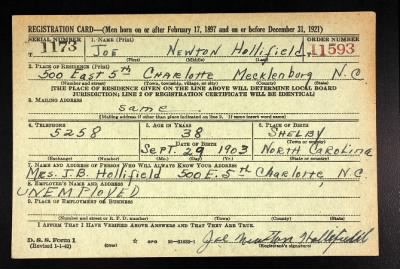 REGISTRATION CARD—(Men born on or after February 17, 1897 and on or before December 31, 1921)
SERIAL NUMBER 1. NAME (Print) ORDER NUMBER
T 1173 JOE NEWTON Hollifield T 11593
(First) (Middle) (Last)
2. PLACE OF RESIDENCE (Print)
500 EAST 5th CHARLOTTE MECKLENBURG N.C
(Number and street) (Town, township, village, or city) (County) (State)
[THE PLACE OF RESIDENCE GIVEN ON THE LINE ABOVE WILL DETERMINE LOCAL BOARD
JURISDICTION; LINE 2 OF REGISTRATION CERTIFICATE WILL BE IDENTICAL]
3. MAILING ADDRESS
same
[Mailing address if other than place indicated on line 2. If same insert word same]
4. TELEPHONE 5. AGE IN YEARS 6. PLACE OF BIRTH
5258 38 SHELBY
DATE OF BIRTH (Town or county)
SEPT. 29 1903 NORTH CAROLINA
(Exchange) (Number) (Mo.) (Day) (Yr.) (State or country)
7. NAME AND ADDRESS OF PERSON WHO WILL ALWAYS KNOW YOUR ADDRESS
MRS. J.B. Hollifield 500 E. 5th Charlotte, N.C.
8. EMPLOYER'S NAME AND ADDRESS
UNEMPLOYED
9. PLACE OF EMPLOYMENT OR BUSINESS
(Number and street or R. F. D. number) (Town) (County) (State)
I AFFIRM THAT I HAVE VERIFIED ABOVE ANSWERS AND THAT THEY ARE TRUE.
D. S. S. Form 1
(Revised 1-1-42) (over) Joe Newton Hollifield
(Registrant's signature)